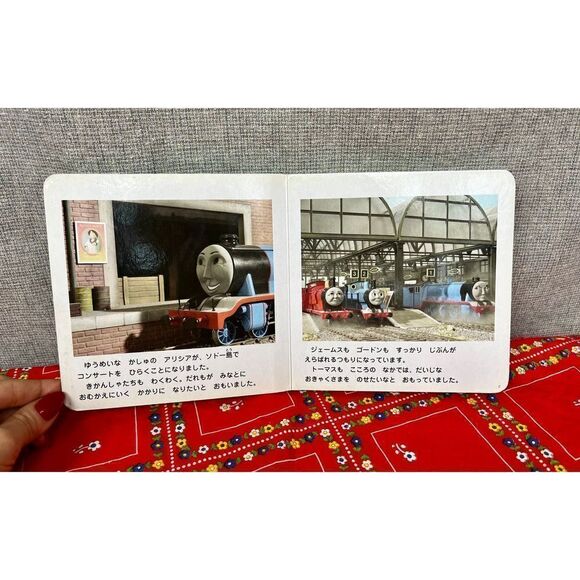 ゆうめいな かしゅの アリシアが、ソドー島で
コンサートを ひらくことになりました。
きかんしゃたちも わくわく。だれもが みなとに
おむかえにいく かかりに なりたいと おもいました。
ジェームスも ゴードンも すっかり じぶんが
えらばれるつもりになっています。
トーマスも こころの なかでは、だいじな
おきゃくさまを のせたいなと おもっていました。